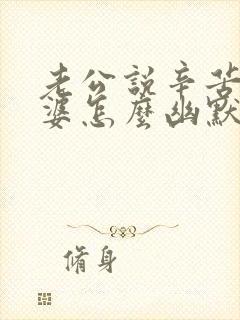 老公說辛苦
婆怎麼幽默
脩身